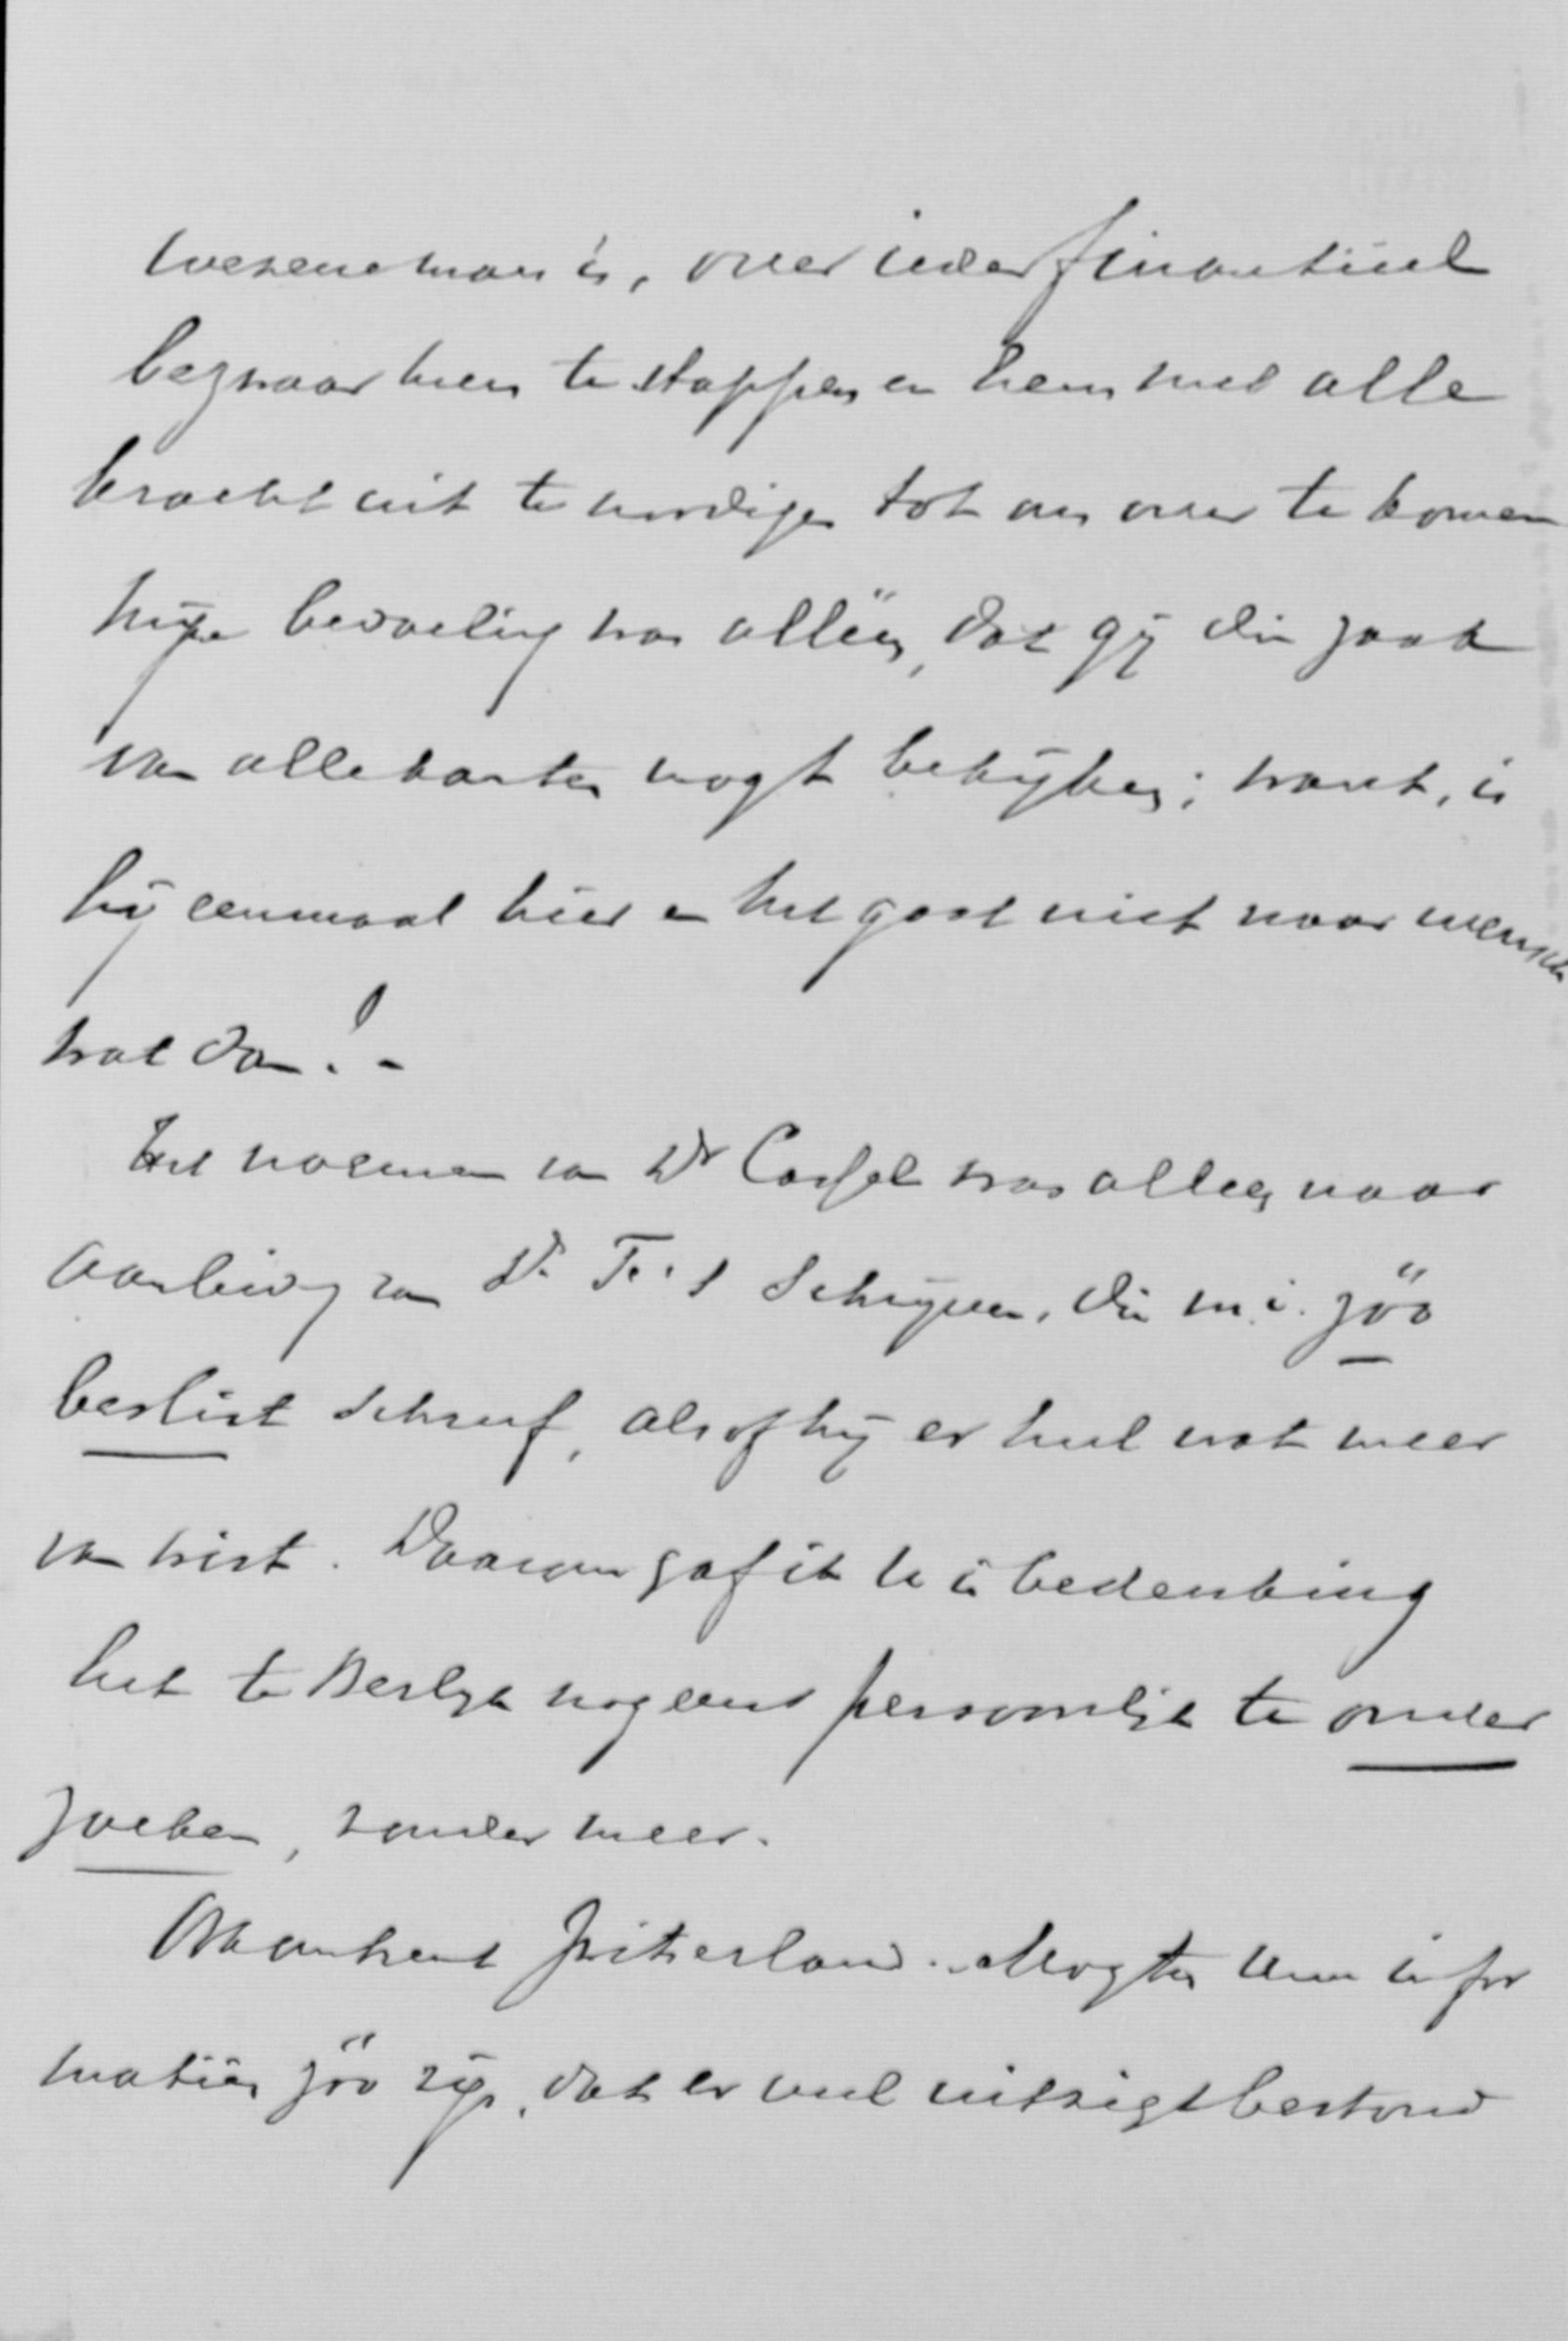 wezene man is, over ieder finantieel
bezwaar heen te stappen en hem met alle
kracht uit te noodigen tot ons over te komen
mijne bedoeling was alleen, dat gij die zaak
van alle kanten mogt bekijken; want, is
hij eenmaal hier en het gaat niet naar wensch
wat dan! -
Het noemen van Dr Cassel was alleen naar
aanleiding van Dr. T.'s schrijven, die m.i. zóó
beslist schreef, alsof hij er heel wat meer
van wist. Daarom gaf ik te in bedenking
het te Berlijn nog eens persoonlijk te onder
zoeken, zonder meer.
Zwitserland. Mogten uwe infor
matiën zóó zijn, dat er veel uitzigt bestond